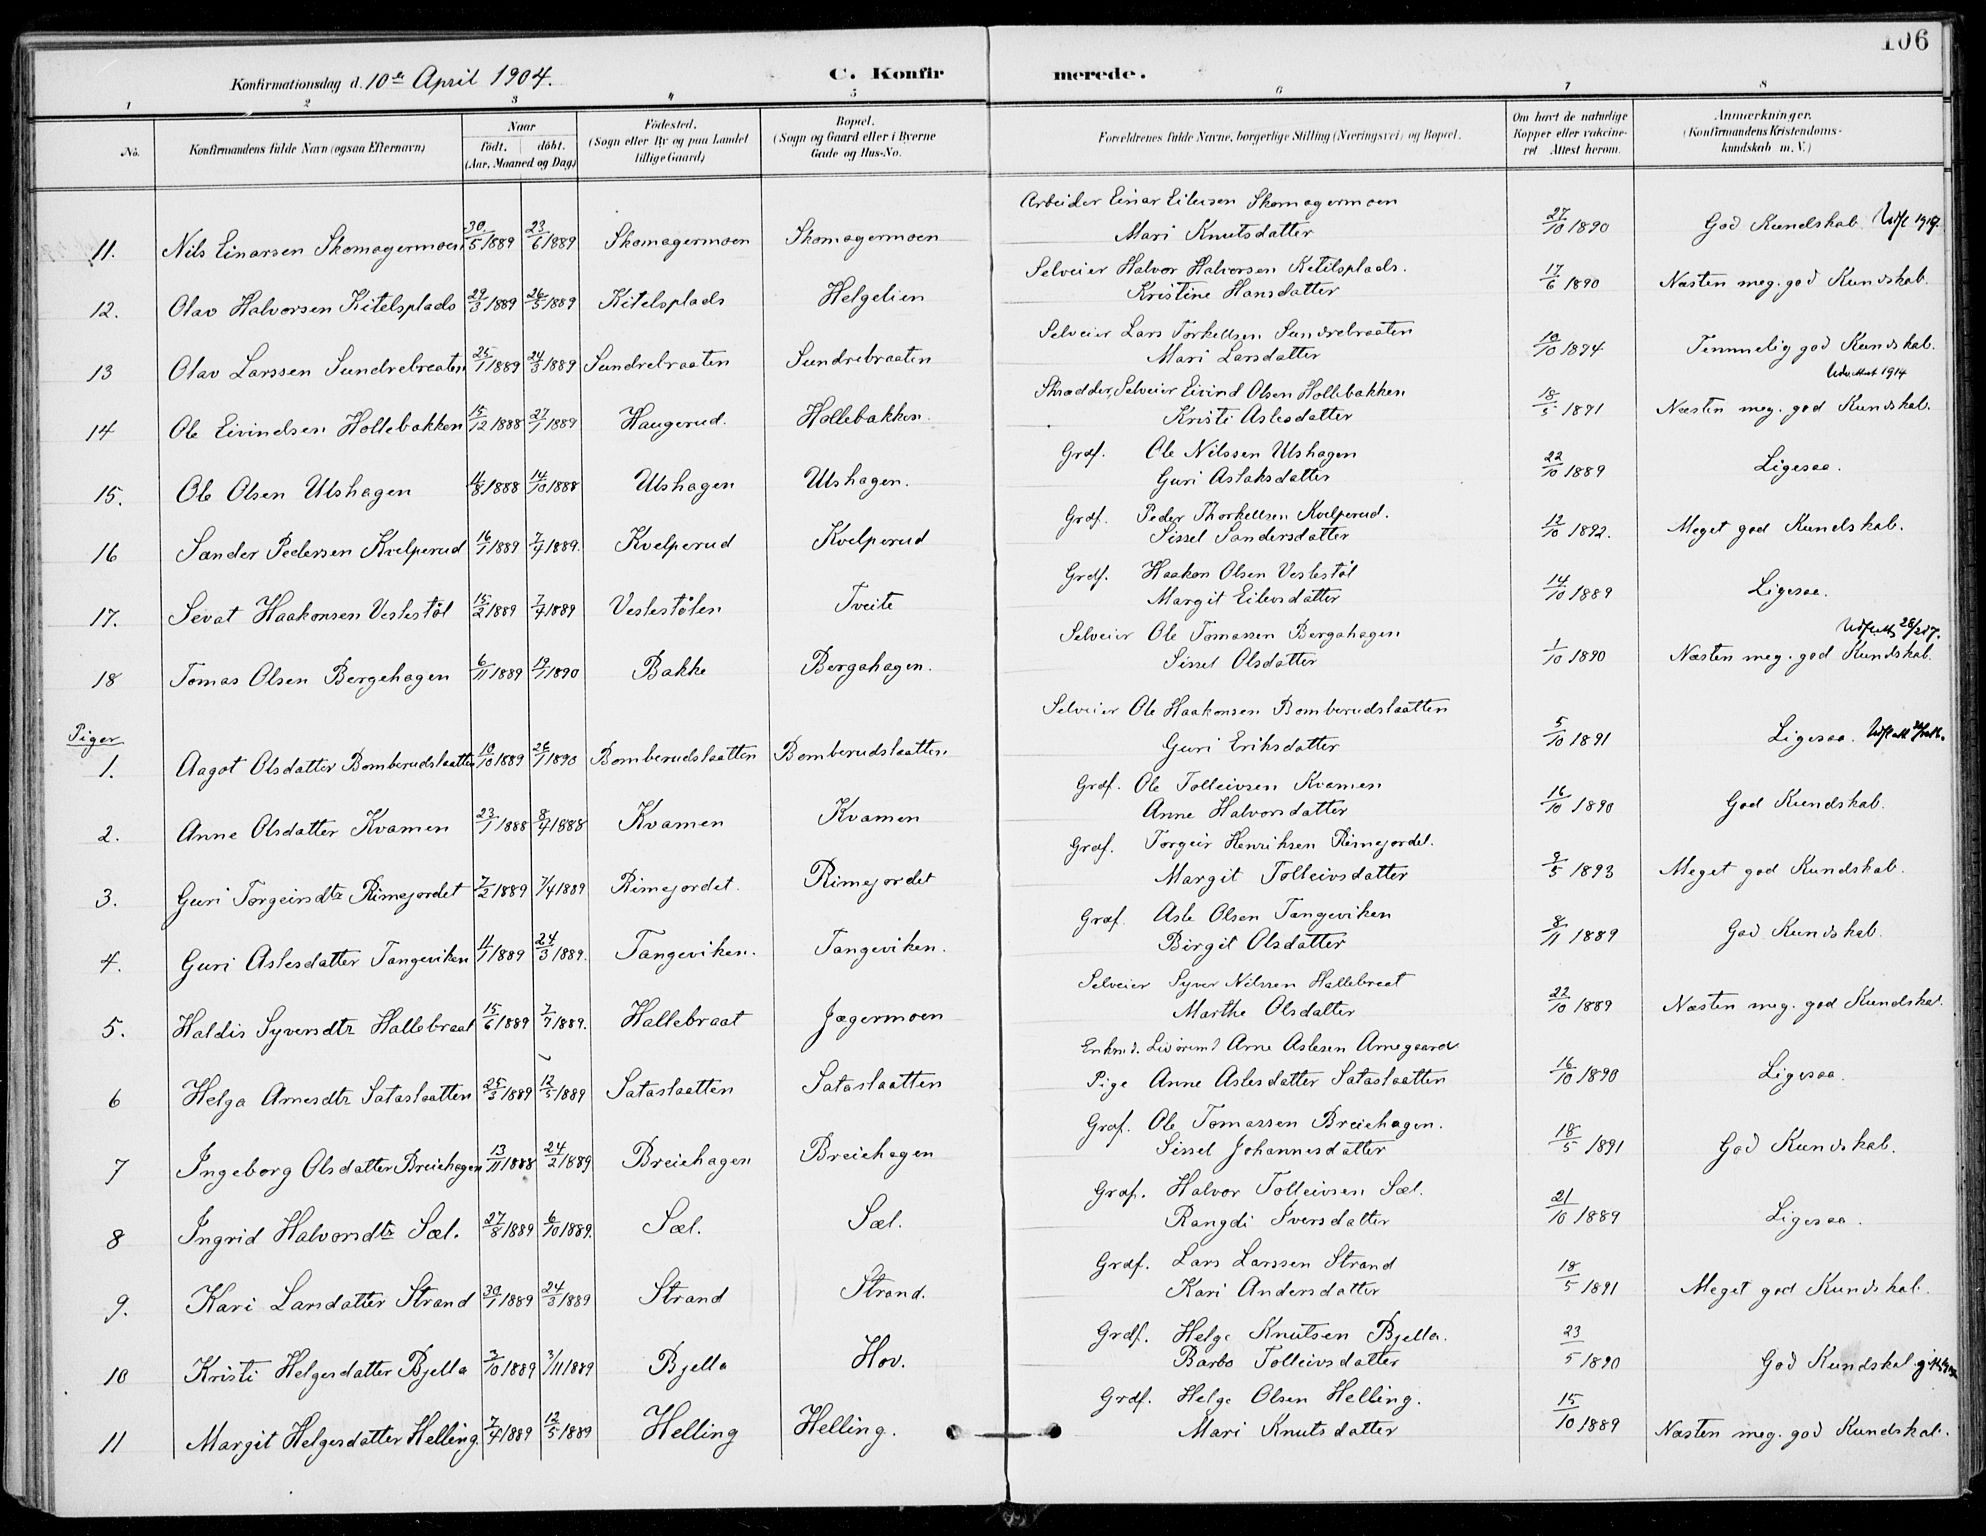 106
Konfirmationsdag d. 10de April 1904. C. Konfirmerede.
1 2 3 4 5 6 7 8
No. Konfirmandens fulde Navn (ogsaa Efternavn) Naar født. døbt. (Aar, Maaned og Dag) Fødested. (Sogn eller By og paa Landet tillige Gaard) Bopæl. (Sogn og Gaard eller i Byerne Gade og Hus-No. Forældrenes fulde Navne, borgerlige Stilling (Næringsvei) og Bopæl. Om havt de naturlige Kopper eller vakcineret Attest herom. Anmerkninger. (Konfirmandens Kristendomskundskab m. V.)
Arbeider Einar Eilevsen Skomagermoen
11. Nils Einarsen Skomagermoen 30/5 1889 23/6 1889 Skomagermoen Skomagermoen Mari Knutsdatter 27/10 1890 God Kundskab.
Selveier Halvor Halvorsen Kitilsplads.
12. Olav Halvorsen Kitelsplads 29/3 1889 26/5 1889 Kitelsplads Helgelien Kristine Hansdatter 17/6 1890 Næsten meg. god Kundskab.
Selveier Lars Torkellsen Sundrebraaten
13 Olav Larssen Sundrebraaten 25/1 1889 24/3 1889 Sundrebraaten Sundrebraaten Mari Larsdatter 10/10 1894 Temmelig god Kundskab.
1914
Skrædder, Selveier Eivind Olsen Hollebakken
14 Ole Eivindsen Hollebakken 15/12 1888 27/1 1889 Haugerud. Hollebakken. Kristi Aslesdatter 18/5 1891 Næsten meg. god Kundskab.
Grdf. Ole Nilssen Ulshagen
15. Ole Olsen Ulshagen 4/8 1888 14/10 1888 Ulshagen Ulshagen. Guri Aslaksdatter 22/10 1889 Ligesaa.
Grdf. Peder Thorkellsen Kvelperud.
16 Sander Pedersen Kvelperud 16/1 1889 7/4 1889. Kvelperud Kvelperud Sissel Sandersdatter 12/10 1892. Meget god Kundskab.
Grdf. Haakon Olsen Veslestøl
17. Sevat Haakonsen Veslestøl 15/2 1889 7/4 1889 Veslestølen Tveite Margit Eilevsdatter 14/10 1889 Ligesaa.
Selveier Ole Tomassen Bergahagen
18 Tomas Olsen Bergehagen 6/11 1889 19/1 1890 Bakke Bergahagen. Sissel Olsdatter 1/10 1890 Næsten meg. god Kundskab.
Piger
Selveier Ole Haakonsen Bomberudslaatten
1. Aagot Olsdatter Bomberudslaatten 10/10 1889 26/1 1890 Bomberudslaatten Bomberudslaatten Guri Eriksdatter 5/10 1891 Ligesaa.
Grdf. Ole Tolleivsen Kvamen
2. Anne Olsdatter Kvamen 23/1 1888 8/4 1888 Kvamen Kvamen Anne Halvorsdatter 16/10 1890 God Kundskab.
Grdf. Torgeir Henriksen Rimejordet.
3. Guri Torgeirsdtr Rimejordet 7/2 1889 7/4 1889 Rimejordet. Rimejordet Margit Tolleivsdatter 9/5 1893 Meget god Kundskab.
Grdf. Asle Olsen Tangeviken
4. Guri Aslesdatter Tangeviken 4/1 1889 24/3 1889. Tangeviken. Tangeviken. Birgit Olsdatter 8/11 1889 God Kundskab.
Selveier Syver Nilssen Hallebraat
5. Haldis Syversdtr Hallebraat 15/6 1889 7/7 1889. Hallebraat Jægermoen Marthe Olsdatter 22/10 1889 Næsten meg. god Kundskab.
Arne Aslesen Arnegaard
6 Helga Arnesdtr Sataslaatten 25/3 1889 12/5 1889 Sataslaatten Sataslaatten Pige Anne Aslesdatter Sataslaatten 16/10 1890 Ligesaa.
Grdf. Ole Tomassen Breiehagen.
7 Ingeborg Olsdatter Breiehagen 13/11 1888 24/2 1889 Breiehagen Breiehagen Sissel Johannesdatter 18/5 1891 God Kundskab.
Grdf. Halvor Tolleivsen Sæl.
8 Ingrid Halvorsdtr Sæl. 27/8 1889 6/10 1889. Sæl. Sæl. Rangdi Iversdatter 21/10 1889 Ligesaa.
Grdf. Lars Larssen Strand
9. Kari Larsdatter Strand 30/1 1889 24/3 1889 Strand Strand. Kari Andersdatter 18/5 1891 Meget god Kundskab.
Grdf. Helge Knutsen Bjella.
10 Kristi Helgesdatter Bjella 3/10 1889 3/11 1889 Bjella Hov. Barbo Tolleivsdatter 23/5 1890 God Kundskab
Grdf. Helge Olsen Helling.
11 Margit Helgesdatter Helling. 7/4 1889 12/5 1889 Helling Helling. Mari Knutsdatter 15/10 1889 Næsten meg. god Kundskab.